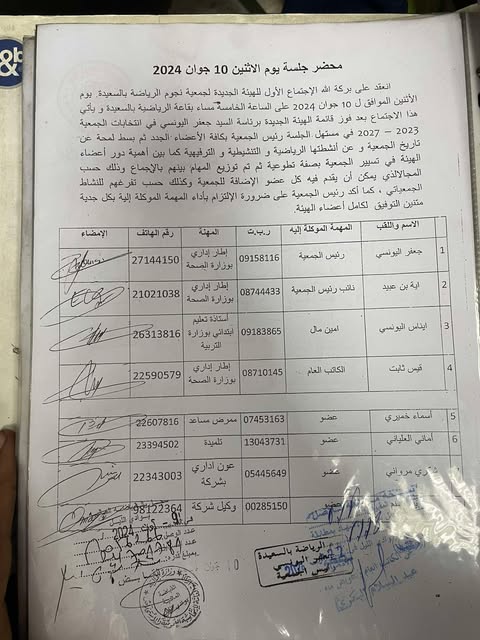 محضر جلسة يوم الاثنين 10 جوان 2024
انعقد على بركة الله الإجتماع الأول للهيئة الجديدة لجمعية نجوم الرياضة بالسعيدة. يوم
الأثنين الموافق ل 10 جوان 2024 على الساعة الخامسة مساء بقاعة الرياضية بالسعيدة و يأتي
هذا الاجتماع بعد فوز قائمة الهيئة الجديدة برئاسة السيد جعفر اليونسي في انتخابات الجمعية
2023 – 2027 في مستهل الجلسة رئيس الجمعية بكافة الأعضاء الجدد ثم بسط لمحة عن
تاريخ الجمعية و عن أنشطتها الرياضية و التنشيطية و الترفيهية كما بين أهمية دور أعضاء
الهيئة في تسيير الجمعية بصفة تطوعية ثم تم توزيع المهام بينهم بالإجماع وذلك حسب
المجالالذي يمكن أن يقدم فيه كل عضو الإضافة للجمعية وكذلك حسب تفرغهم للنشاط
الجمعياتي ، كما أكد رئيس الجمعية على ضرورة الإلتزام بأداء المهمة الموكلة إليه بكل جدية
متنين التوفيق لكامل أعضاء الهيئة.
الاسم واللقب المهمة الموكلة إليه ر.ب.ت المهنة رقم الهاتف الإمضاء
1 جعفر اليونسي رئيس الجمعية 09158116 إطار إداري بوزارة الصحة 27144150
2 اية بن عبيد نائب رئيس الجمعية 08744433 إطار إداري بوزارة الصحة 21021038
3 ايناس اليونسي امين مال 09183865 أستاذة تعليم ابتدائي بوزارة التربية 26313816
4 قيس ثابت الكاتب العام 08710145 إطار إداري بوزارة الصحة 22590579
5 أسماء خميري عضو 07453163 ممرض مساعد 22607816
6 أماني العلياني عضو 13043731 تلميذة 23394502
مرواني عضو 05445649 عون اداري بشركة 22343003
00285150 وكيل شركة 98122364
الرياضة بالسعيدة
رئيس الجمعية